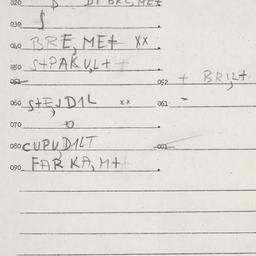 020
030
040 BRE,MEt xx
050 StPAKU,Lt
051
052 + BRI,Lt
060 StE,JDIL xx
061 -
070 o
080 CUPU,DILT
081
090 FARKA,Mt